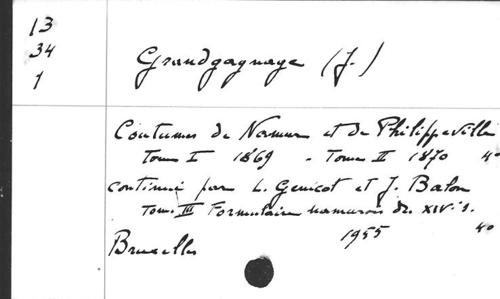 13
34
1
Grandgagnage (J.)
Coutumes de Namur et de Philippeville
Tome I 1869 - Tome II 1870 4°
continué par L. Genicot et J. Balon
Tome III Formulaire namurois du XIV s.
Bruxelles 1955 4°